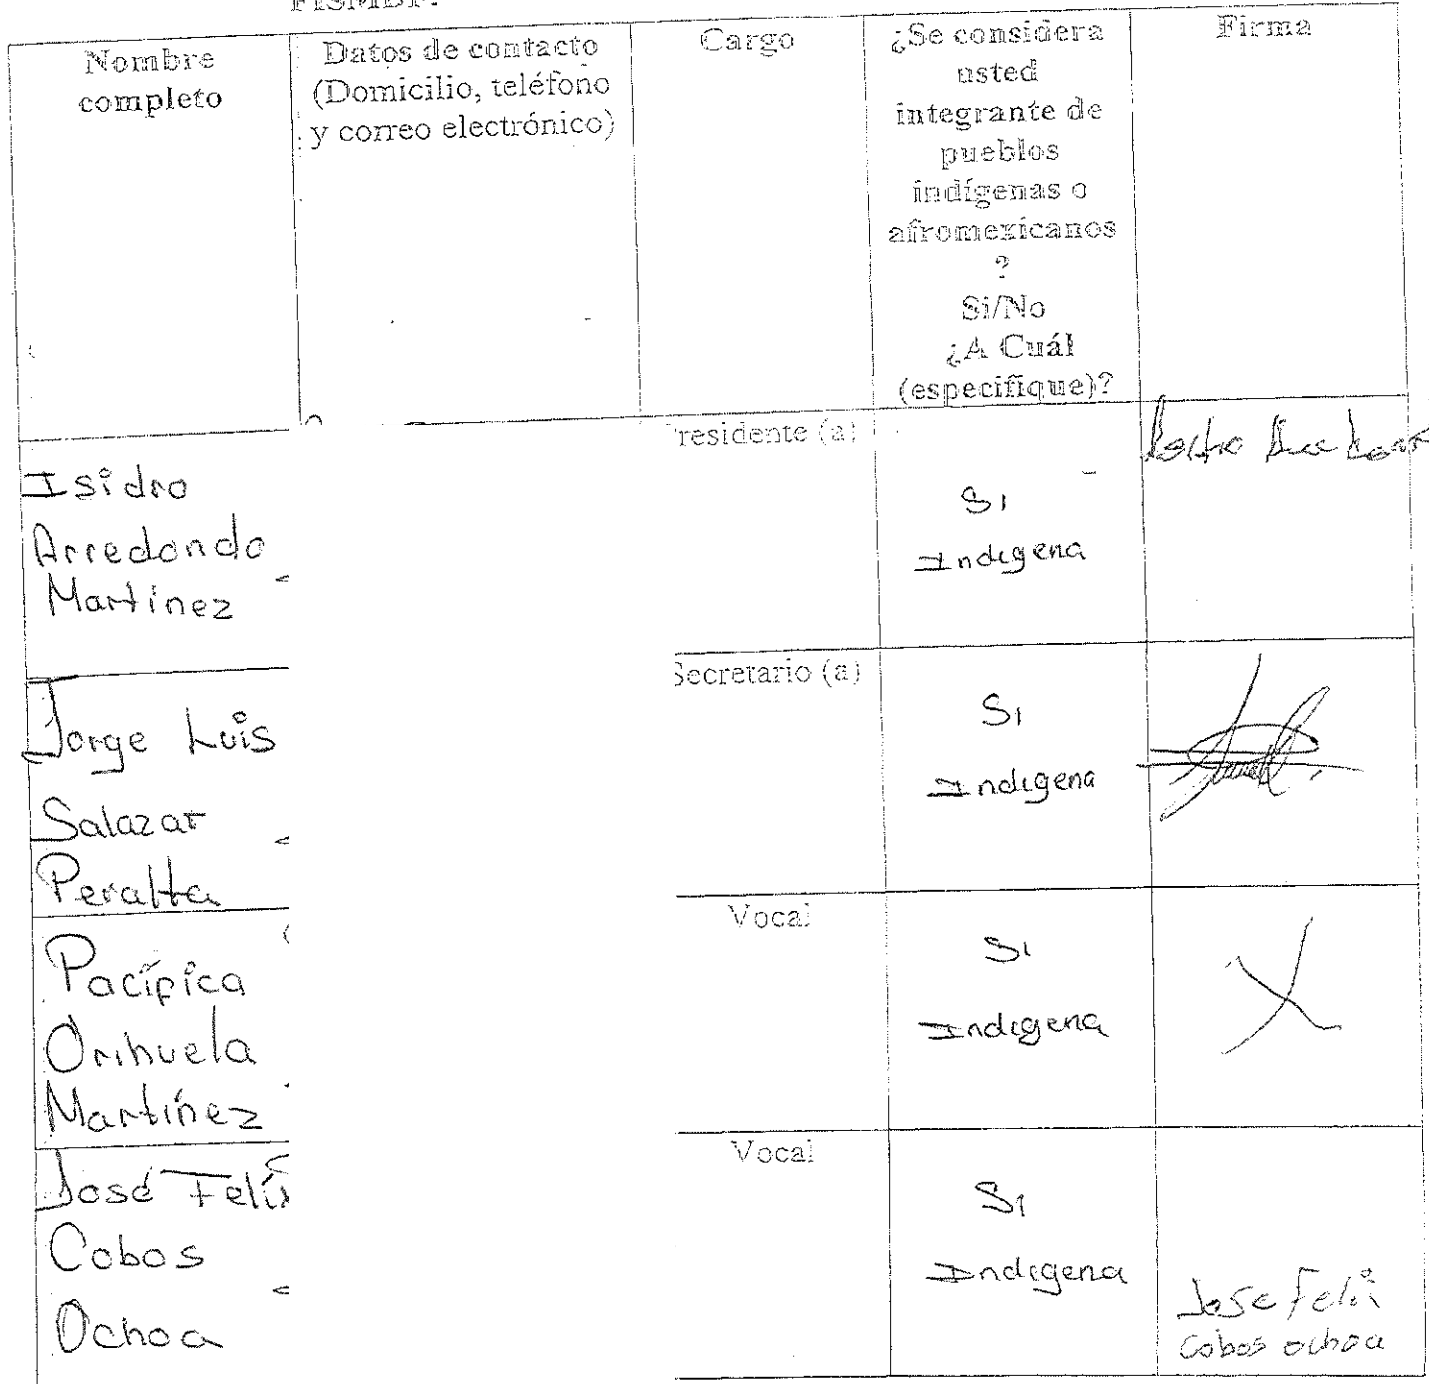 FISMDF.
Nombre
completo
Datos de contacto
(Domicilio, teléfono
y correo electrónico)
Cargo
¿Se considera
usted
integrante de
pueblos
indígenas o
afromexicanos
?
Si/No
¿A Cuál
(especifique)?
Firma
Isidro
Arredondo
Martínez
residente (a)
Si
Indigena
Jorge Luis
Salazar
Peralta
Secretario (a)
Si
Indigena
Pacífica
Orihuela
Martínez
Vocal
Si
Indigena
X
José Felíx
Cobos
Ochoa
Vocal
Si
Indigena
Jose Felix
Cobos ochoa